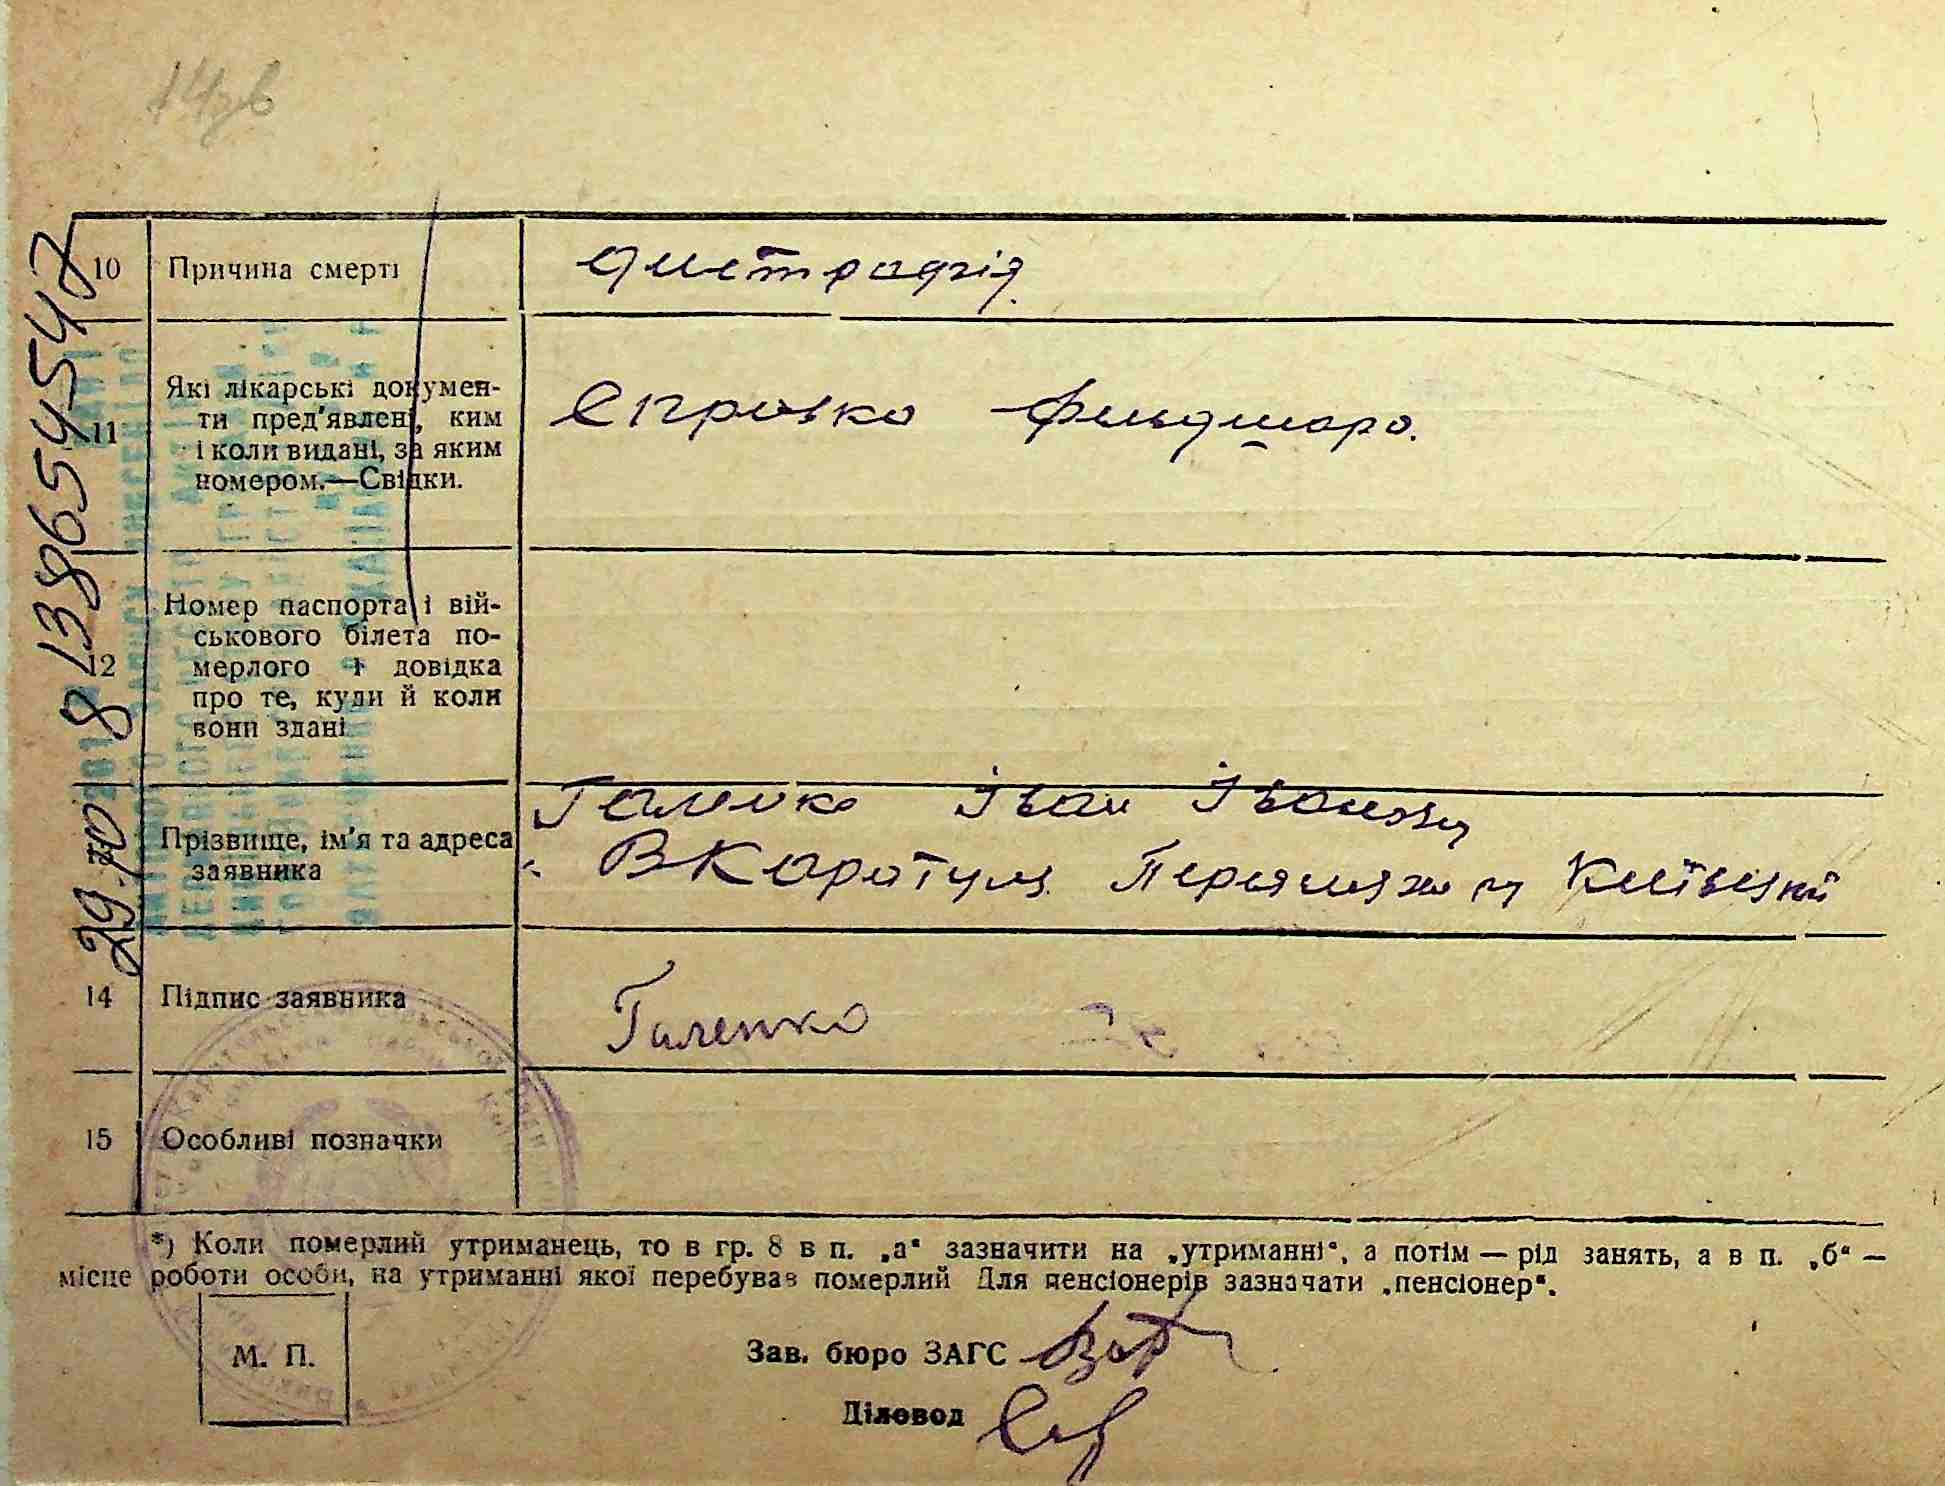 10 Причина смерті дистрофія.
11 Які лікарські докумен-
ти пред'явлені, ким
і коли видані, за яким
номером.—Свідки.
Справка фельдшара.
12 Номер паспорта і вій-
ськового білета по-
мерлого і довідка
про те, куди й коли
вони здані
Прізвище, ім'я та адреса
заявника
Галенко Іван Іванович
Київської
14 Підпис заявника Галенко
15 Особливі позначки
*) Коли померлий утриманець, то в гр. 8 в п. „а" зазначити на „утриманні", а потім — рід занять, а в п. „б" —
місце роботи особи, на утриманні якої перебував померлий Для пенсіонерів зазначати „пенсіонер".
М. П.
Зав. бюро ЗАГС
Діловод
29.10 8 138654547